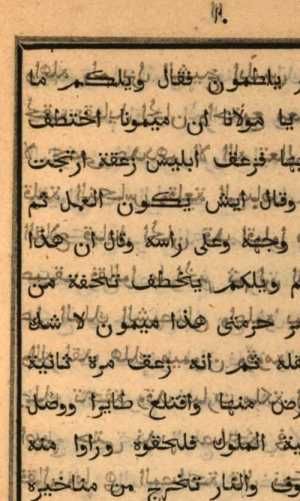 ١٠
يلطمون فقال ويلكم ما
يا مولانا ان ميمونا اختطف
فزعف ابليس زعقة ارتجت
وقال ايش يكون العمل ثم
وجهه وعلى راسه وقال ان هذا
ويلكم يخطف تحفة من
حرمتى هذا ميمون لا شك
ثم انه زعف مرة ثانية
منها واقتلع طايرا ووصل
الملوك فلحقوه وراوا منه
والنار تخرج من مناخيره